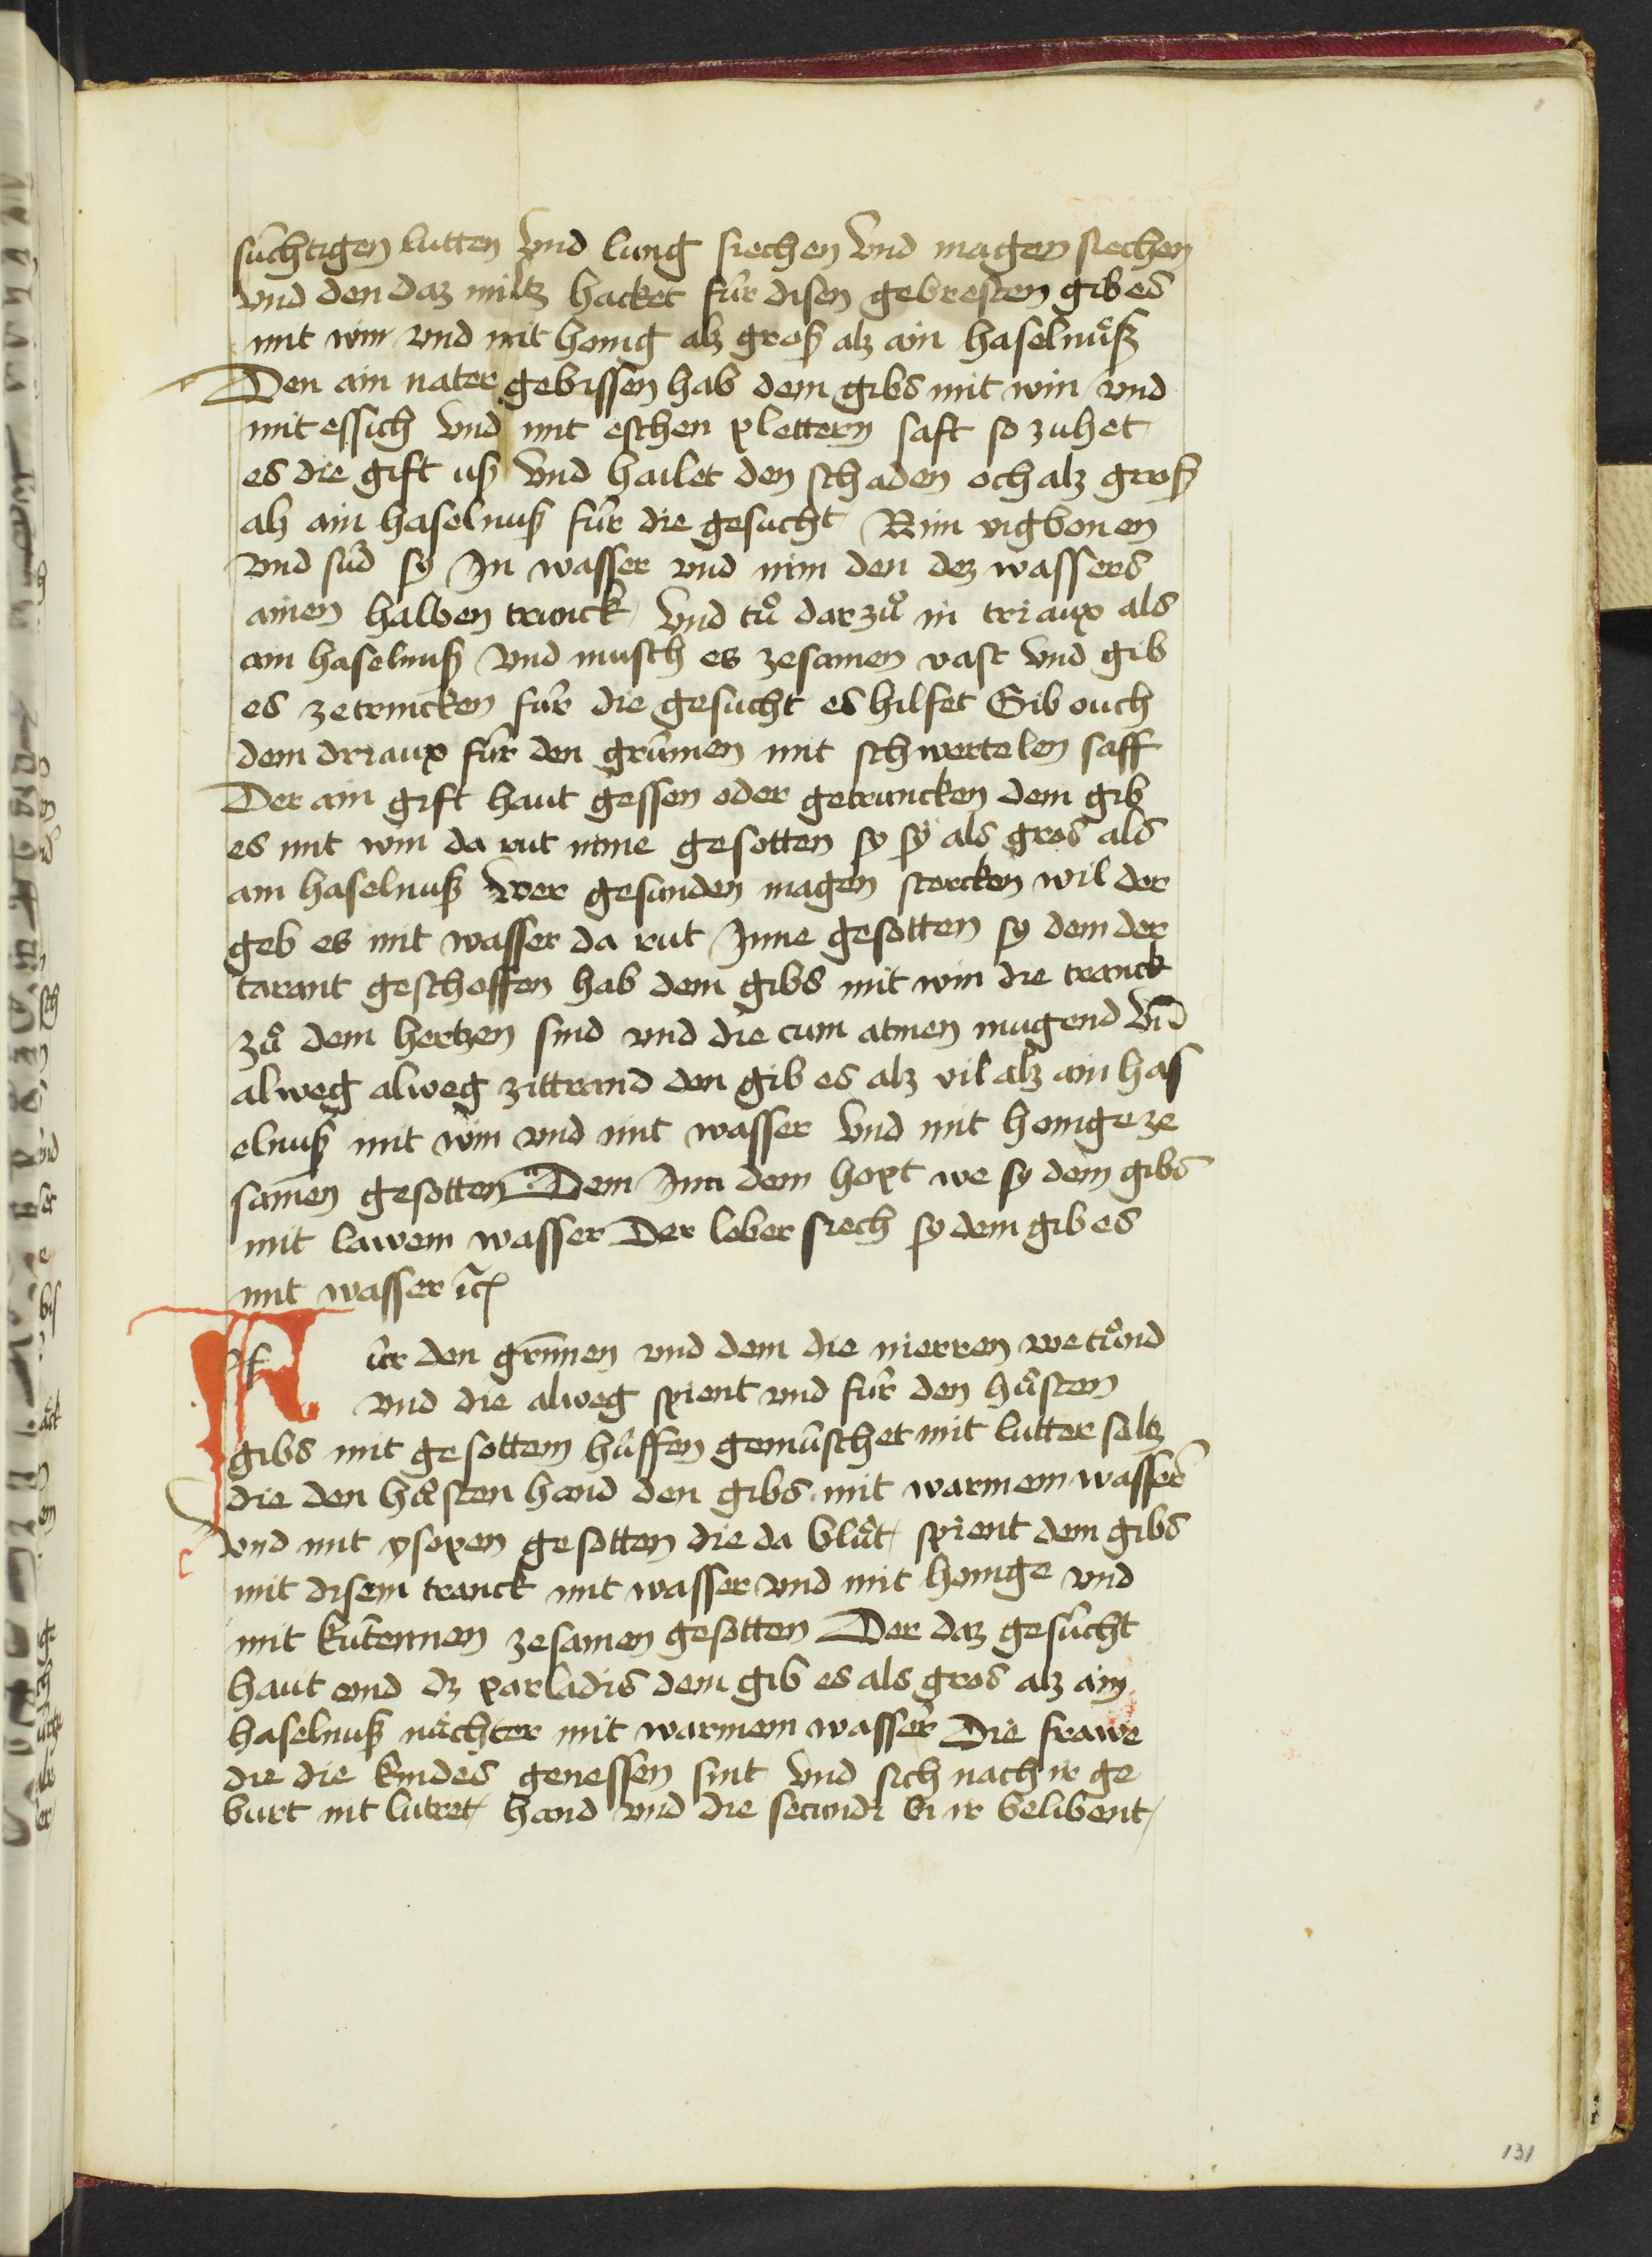 súchtigen lutten vnd lung siechen vnd magen siechen
vnd den daz miltz hacket fúr disen gebresten gib es
mit win vnd mit honig alz groß alz ain haselnuͤß
Den ain nater gebissen hab dem gibs mit win vnd
mit essich vnd mit eschen plettern saft so zuhet
es die gift uß vnd hailet den schaden och alz groß
alz ain haselnuß fúr die gesúcht Nim vigbonen
vnd súd sy In wasser vnd nim den dez wassers
ainen halben trunck vnd tuͦ dar zuͦ in triaux als
ain haselnuß vnd musch es zesamen vast vnd gib
es zetrincken fúr die gesúcht es hilfet Gib ouch
dem driaux fúr den grimen mit schwertelen saff
Der ain gift haut gessen oder getruncken dem gib
es mit win da rut inne gesotten sy sy als gros als
ain haselnuß Wer gesunden magen stercken wil der
geb es mit wasser da rut Inne gesotten sy dem der
tarant geschossen hab dem gibs mit win die tranck
zuͦ dem hertzen sind vnd die cum atmen mugend vnd
alweg alweg zittrand den gib es alz vil alz ain has
elnuß mit win vnd mit wasser vnd mit honige ze
samen gesotten Dem Inn dem hopt we sy dem gibs
mit lawem wasser Der leber siech sy dem gib es
mit wasser ꝛc̃
f úr den grimen vnd dem die nierren we tuͦnd
vnd die alweg spient vnd fúr den huͦsten
gibs mit gesottem húffen gemúschet mit lutter saltz
die den huͦsten hand den gibs mit warmem wasser
vnd mit ysopen gesotten die da bluͦt spient dem gibs
mit disem tranck mit wasser vnd mit honige vnd
mit kúttennen zesamen gesotten Der daz gesúcht
haut vnd dz parladis dem gib es als gros alz ain
haselnuß nuͤchter mit warmem wasser Die frawe
die die kindes genessen sint vnd sich nach ir ge
burt nit lutret hand vnd die secundi bi ir belibent
131